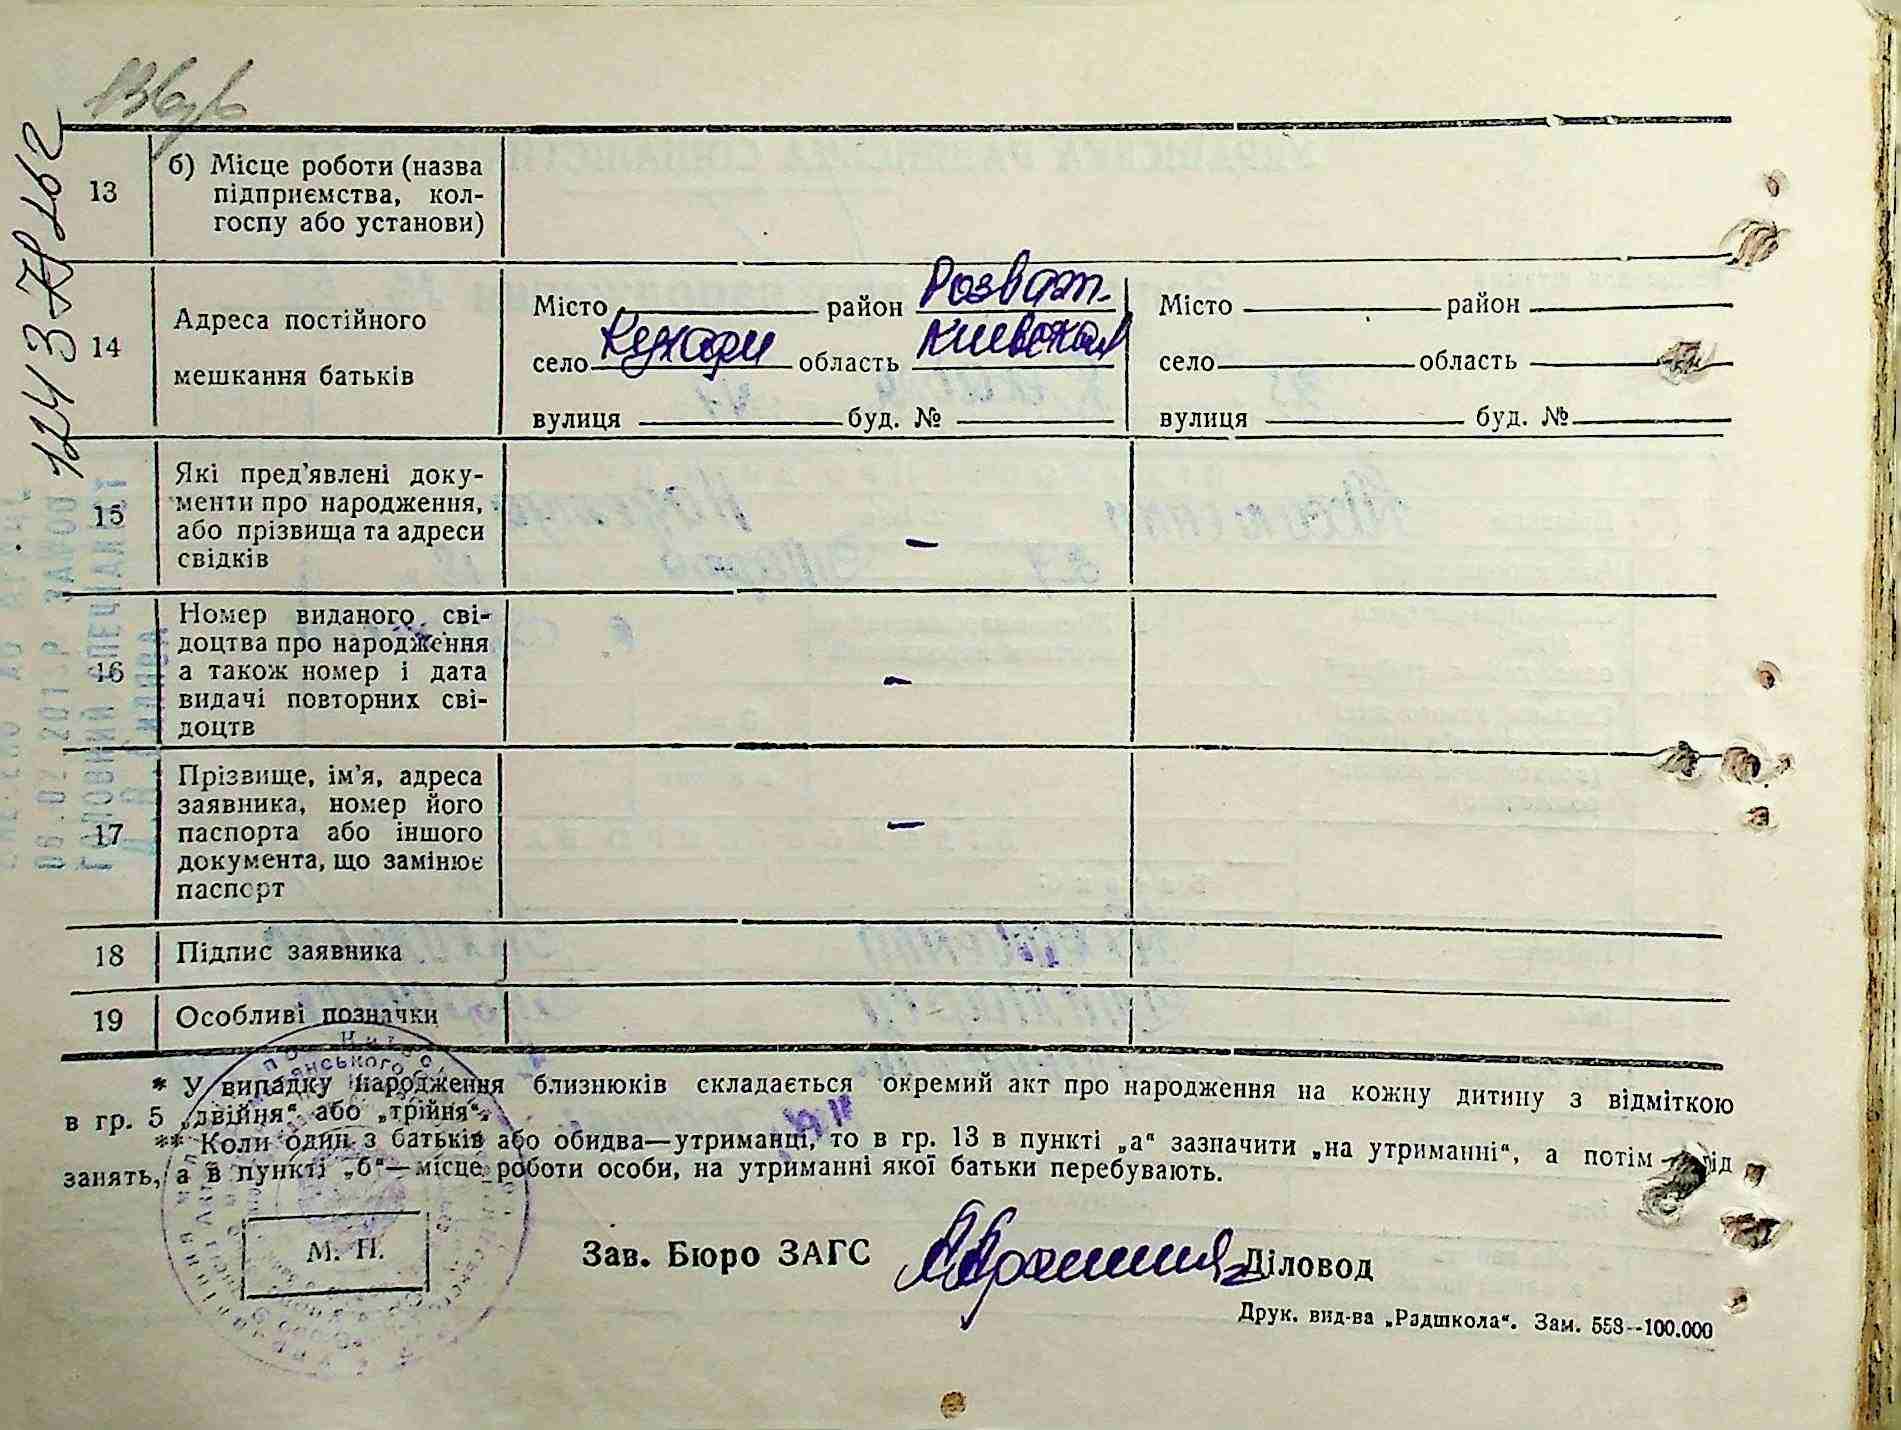 13
б) Місце роботи (назва
підприємства, кол-
госпу або установи)
14
Адреса постійного
мешкання батьків
Місто район Розваж.
село Кухари область Киевская
вулиця буд. №
Місто район
село область
вулиця буд. №
15
Які пред'явлені доку-
менти про народження,
або прізвища та адреси
свідків
–
16
Номер виданого сві-
доцтва про народження
а також номер і дата
видачі повторних сві-
доцтв
–
17
Прізвище, ім'я, адреса
заявника, номер його
паспорта або іншого
документа, що замінює
паспорт
–
18
Підпис заявника
19
Особливі позначки
* У випадку народження близнюків складається окремий акт про народження на кожну дитину з відміткою
в гр. 5 „двійня“ або „трійня“.
** Коли один з батьків або обидва—утриманці, то в гр. 13 в пункті „а“ зазначити „на утриманні“, а потім рід
занять, а в пункті „б“—місце роботи особи, на утриманні якої батьки перебувають.
М. П.
Зав. Бюро ЗАГС Діловод
Друк. вид-ва „Радшкола“. Зам. 558--100.000
ГОЛОВНИЙ СПЕЦІАЛІСТ